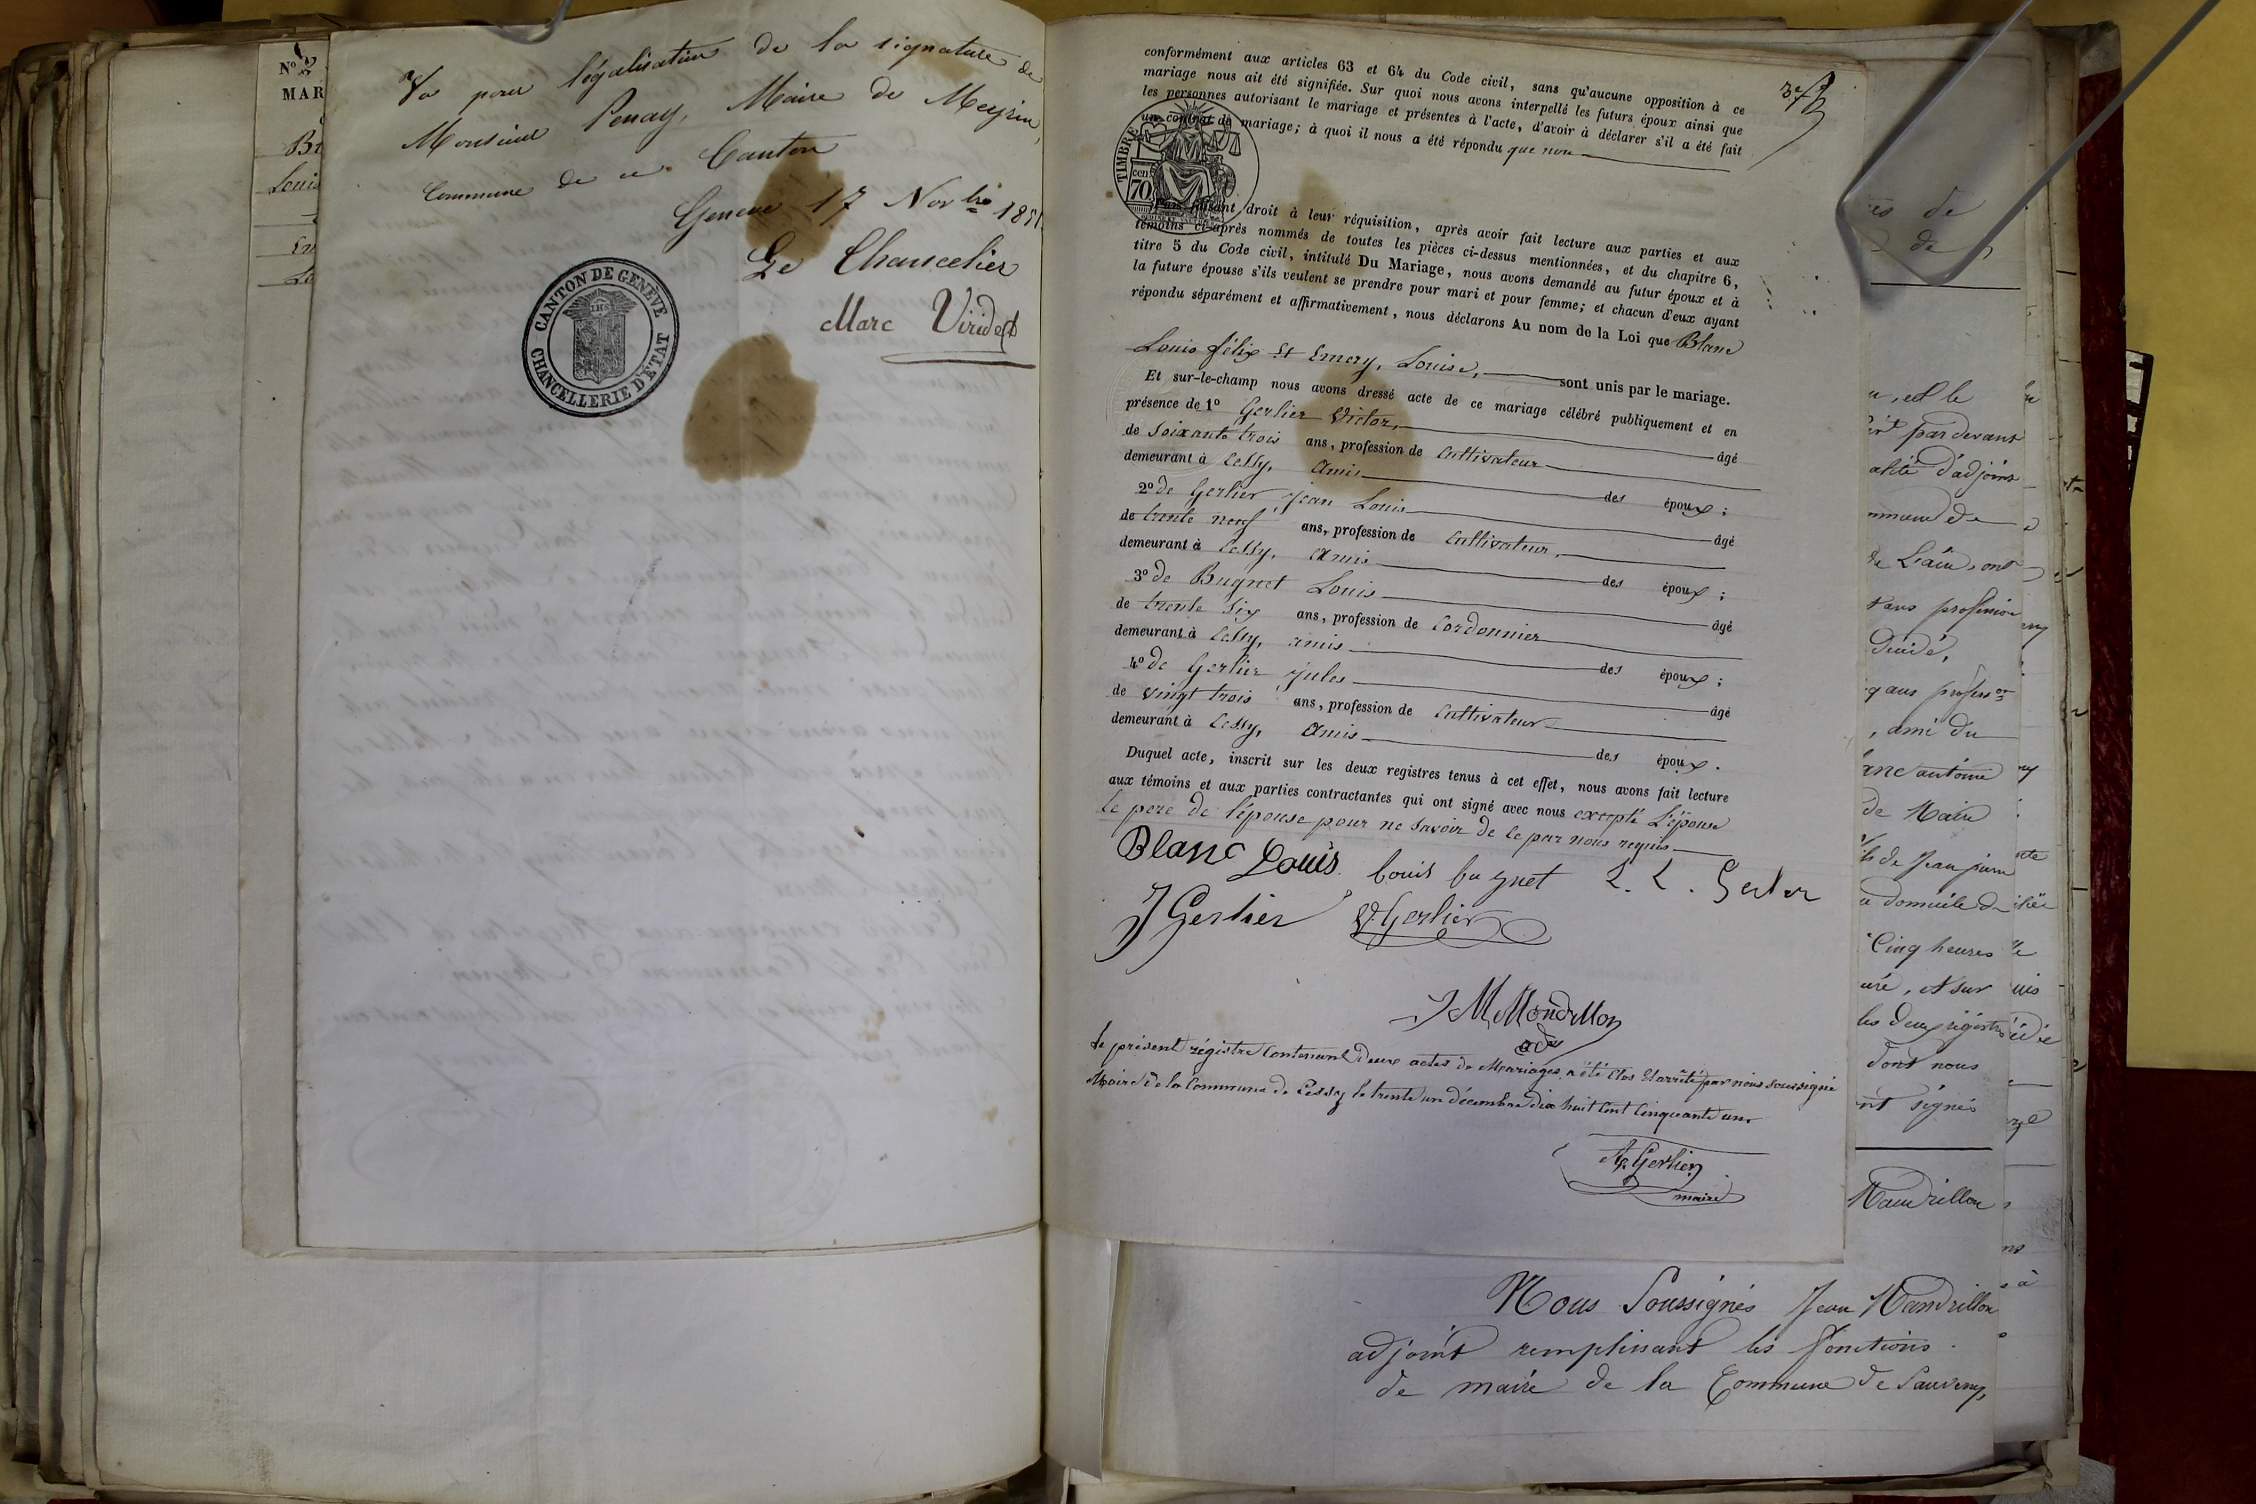 N° 2
MAR
Bl
Louis
Em
Lo
Vu pour légalisation de la signature de
Monsieur Penay, Maire de Meyrin,
Commune de ce Canton
Genève 17 Novbre 1851
Le Chancelier
Marc Viridet
CANTON DE GENÈVE
CHANCELLERIE D'ÉTAT
IHS
conformément aux articles 63 et 64 du Code civil, sans qu'aucune opposition à ce
mariage nous ait été signifiée. Sur quoi nous avons interpellé les futurs époux ainsi que
les personnes autorisant le mariage et présentes à l'acte, d'avoir à déclarer s'il a été fait
un contrat de mariage; à quoi il nous a été répondu que non
TIMBRE
cen 70
droit à leur réquisition, après avoir fait lecture aux parties et aux
témoins ci-après nommés de toutes les pièces ci-dessus mentionnées, et du chapitre 6,
titre 5 du Code civil, intitulé Du Mariage, nous avons demandé au futur époux et à
la future épouse s'ils veulent se prendre pour mari et pour femme; et chacun d'eux ayant
répondu séparément et affirmativement, nous déclarons Au nom de la Loi que Blanc
Louis félix et Emery, Louise, sont unis par le mariage.
Et sur-le-champ nous avons dressé acte de ce mariage célébré publiquement et en
présence de 1° Gerlier Victor, âgé
de Soixante trois ans, profession de Cultivateur
demeurant à Cessy, Amis des époux;
2° de Gerlier Jean Louis âgé
de trente neuf ans, profession de Cultivateur,
demeurant à Cessy, amis des époux;
3° de Bugnet Louis âgé
de trente Six ans, profession de Cordonnier
demeurant à Cessy, amis des époux;
4° de Gerlier Jules âgé
de vingt trois ans, profession de Cultivateur
demeurant à Cessy, Amis des époux.
Duquel acte, inscrit sur les deux registres tenus à cet effet, nous avons fait lecture
aux témoins et aux parties contractantes qui ont signé avec nous excepté L'épouse
le père de l'épouse pour ne savoir de ce par nous requis
Blanc Louis Louis bugnet L. L. Gerlier
J Gerlier V. Gerlier
J M Mandrillon
adj
Le présent régistre Contenant deux actes de Mariages, a été Clos et arrêté par nous soussigné
Maire de la Commune de Cessy le trente un décembre dix huit Cent Cinquante un.
Gerlier
maire
de
de
u, et le
par devant
alité d'adjoint
mmune de
de L'ain, ont
sans profession
Décidé,
, ami du
anc antoine
de Maire
ils de Jean pierre
u domicile de
Cinq heures
uré, et sur
les deux régistres
dont nous
nt signés
Mandrillon
Nous Soussignés Jean Mandrillon
adjoint remplissant les fonctions
de maire de la Commune de Sauverny,